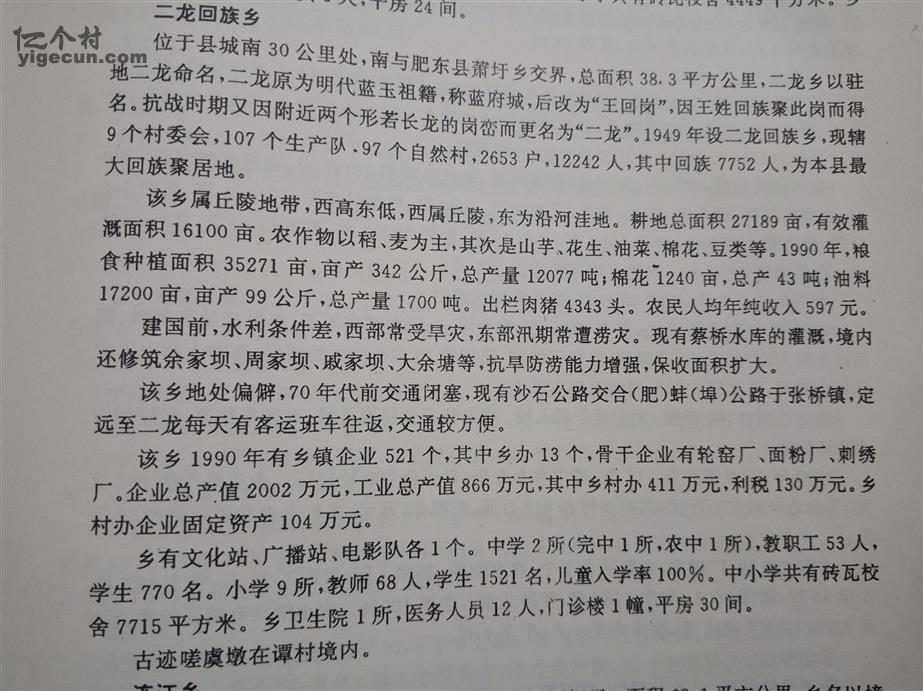 平房24间。
4449平方米。乡
二龙回族乡
亿个村
yigecun.com
位于县城南30公里处,南与肥东县萧圩乡交界,总面积38.3平方公里,二龙乡以驻
地二龙命名,二龙原为明代蓝玉祖籍,称蓝府城,后改为“王回岗”,因王姓回族聚此岗而得
名。抗战时期又因附近两个形若长龙的岗峦而更名为“二龙”。1949年设二龙回族乡,现辖
9个村委会,107个生产队.97个自然村,2653户,12242人,其中回族7752人,为本县最
大回族聚居地。
该乡属丘陵地带,西高东低,西属丘陵,东为沿河洼地。耕地总面积27189亩,有效灌
溉面积16100亩。农作物以稻、麦为主,其次是山芋、花生、油菜、棉花、豆类等。1990年,粮
食种植面积35271亩,亩产342公斤,总产量12077吨;棉花1240亩,总产43吨;油料
17200亩,亩产99公斤,总产量1700吨。出栏肉猪4343头。农民人均年纯收入597元。
建国前,水利条件差,西部常受旱灾,东部汛期常遭涝灾。现有蔡桥水库的灌溉,境内
还修筑余家坝、周家坝、戚家坝、大余塘等,抗旱防涝能力增强,保收面积扩大。
该乡地处偏僻,70年代前交通闭塞,现有沙石公路交合(肥)蚌(埠)公路于张桥镇,定
远至二龙每天有客运班车往返,交通较方便。
该乡1990年有乡镇企业521个,其中乡办13个,骨干企业有轮窑厂、面粉厂、刺绣
厂。企业总产值2002万元,工业总产值866万元,其中乡村办411万元,利税130万元。乡
村办企业固定资产104万元。
乡有文化站、广播站、电影队各1个。中学2所(完中1所,农中1所),教职工53人,
学生770名。小学9所,教师68人,学生1521名,儿童入学率100%。中小学共有砖瓦校
舍7715平方米。乡卫生院1所,医务人员12人,门诊楼1幢,平房30间。
古迹嗟虞墩在谭村境内。